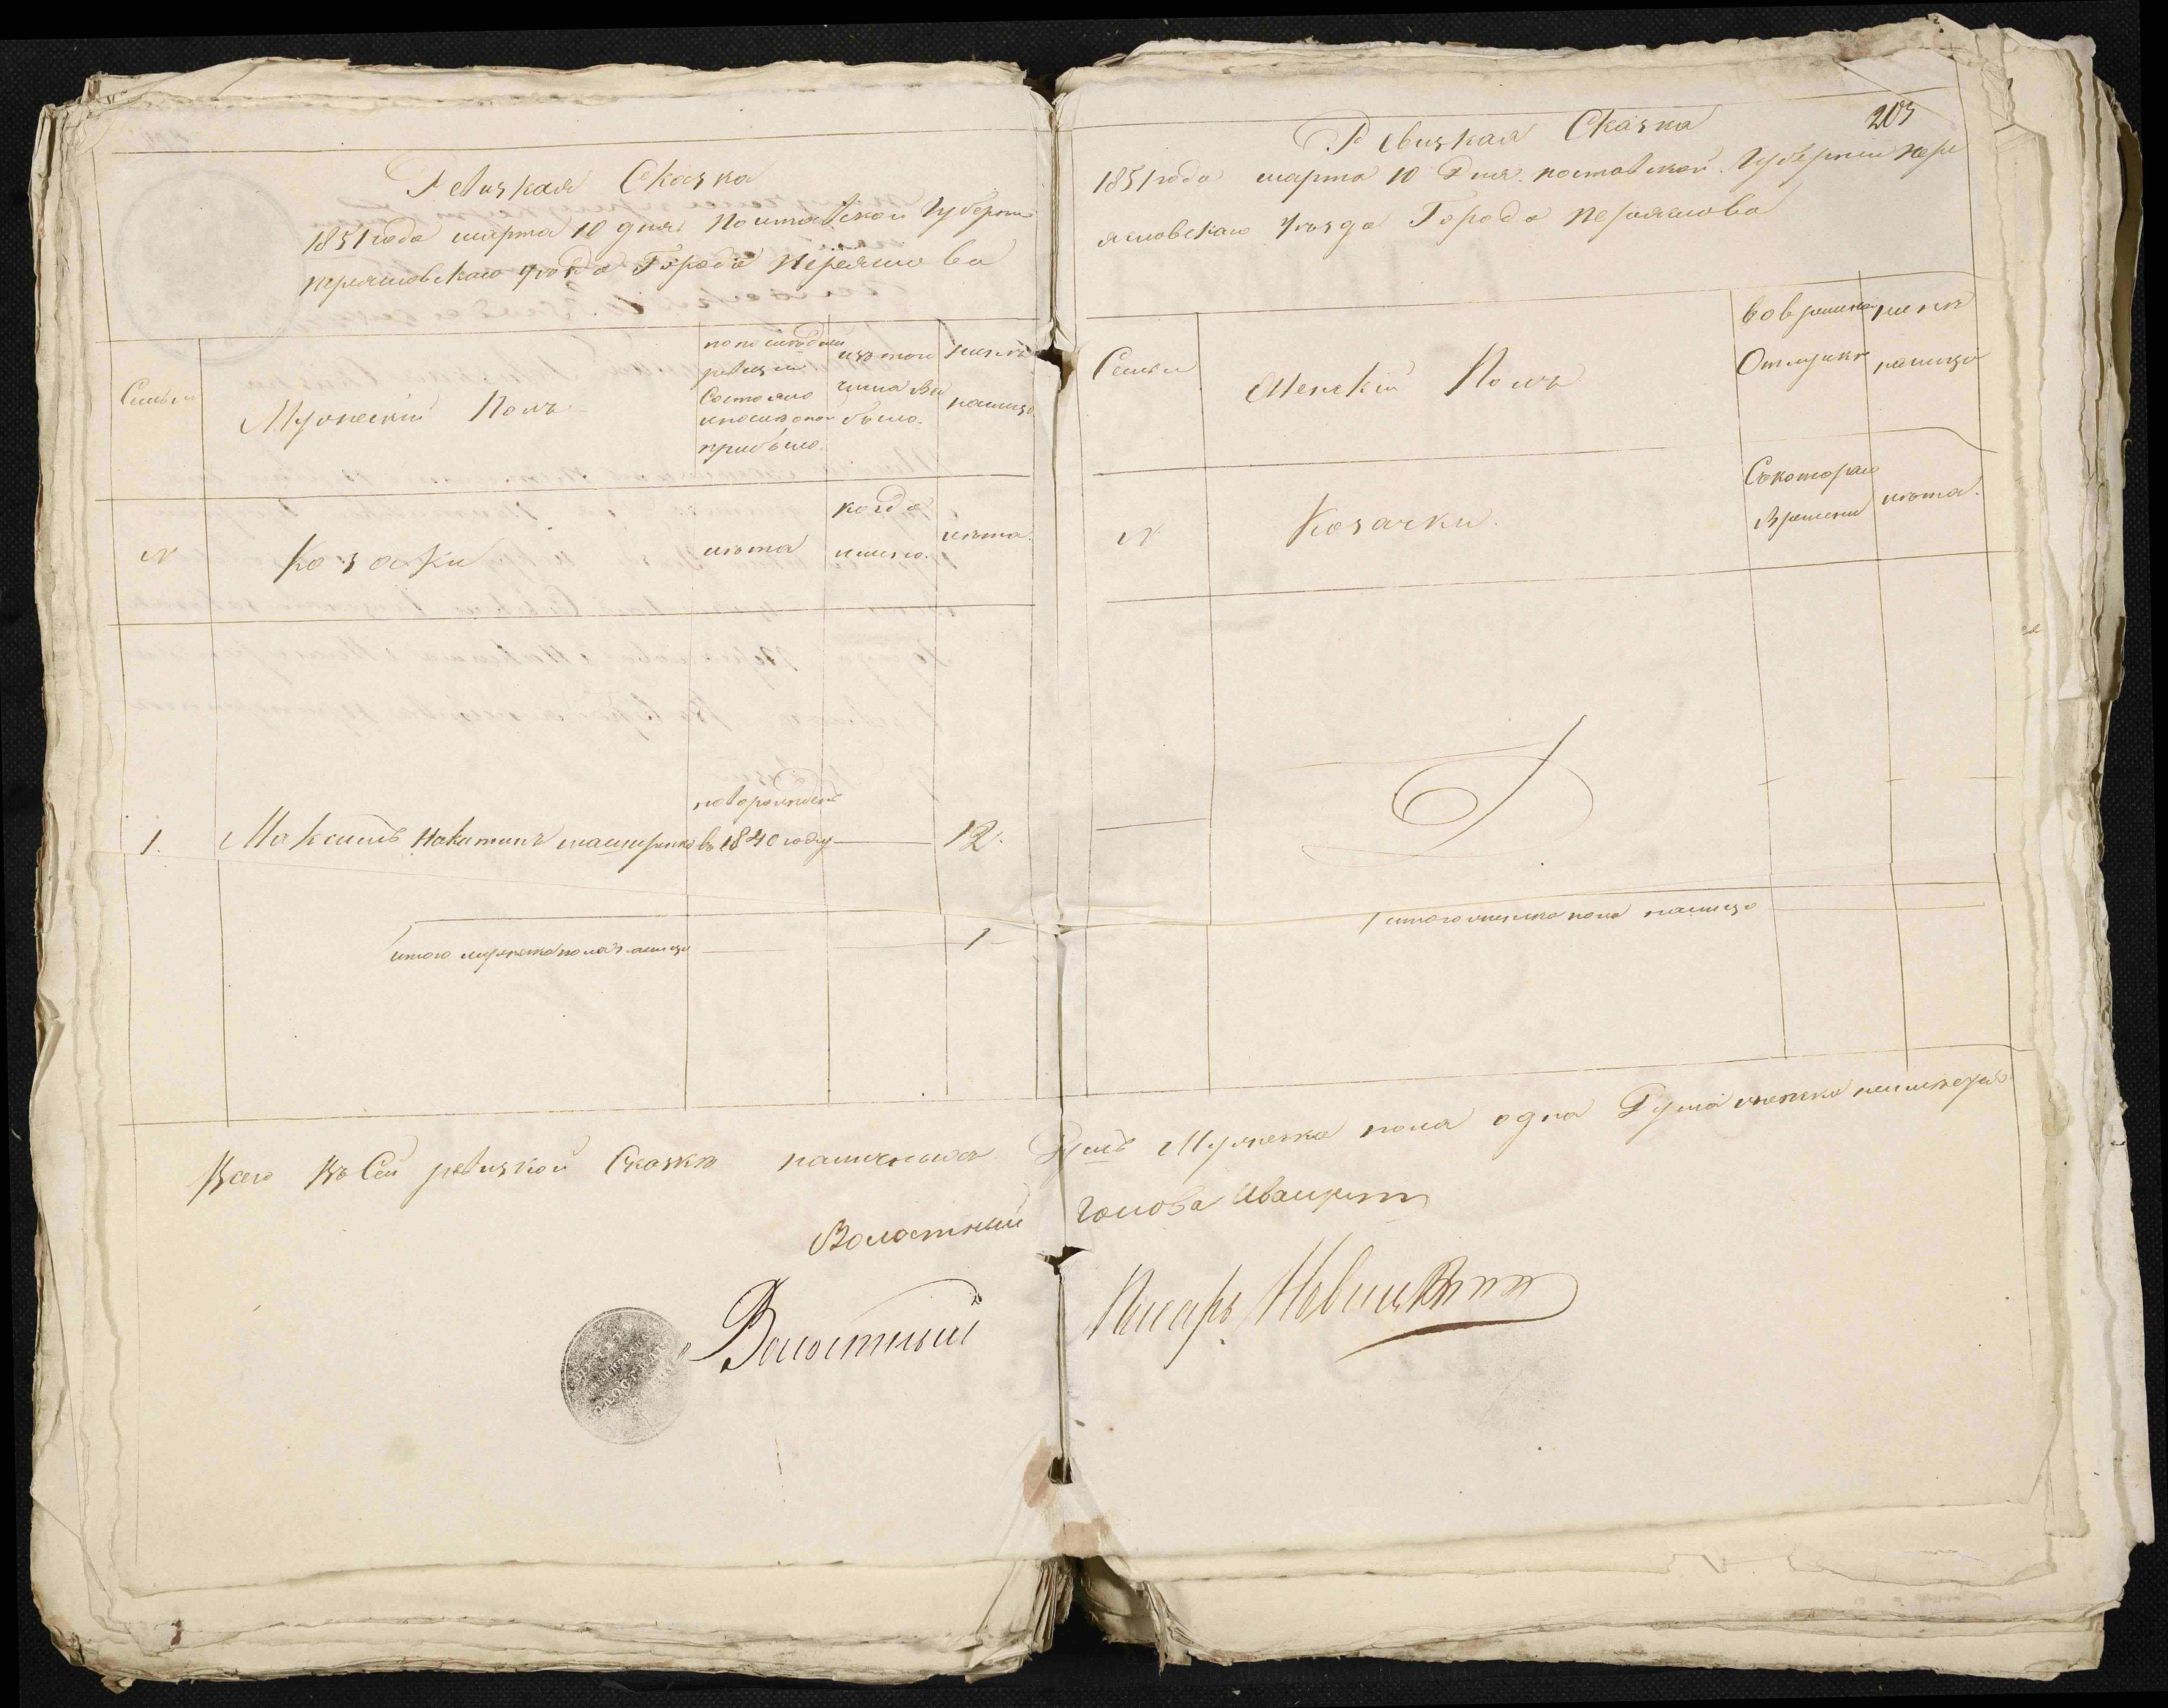 Ревизкая Сказка
1851 года марта 10 дня Полтавской Губерни
переясловскаго уезда Города переяслова
Семьи
Мужеский Полъ
по последней
ревизии
Состояло
и после оной
прибыло.
изъ того
числа вы
было.
ныне
налицо
№
Козаки
лета
когда
именно.
лета.
новорожденъ
1. Максимъ Никитинъ в 1840 году 12.
итого мужеска пола налицо 1
203
Ревизкая Сказка
1851 года марта 10 Дня. полтавской Губернии пере
ясловскаго уезда Города переяслова
Семьи
Женский Полъ
во временной
Отлучке
ныне
налицо
№
Козачки.
Съ котораго
Времени
лета.
итого женска пола налицо
Всего Въ Сей ревизкой Сказке наличныхъ Душъ Мужеска пола одна Душа женска неимеется
Волостный Голова
Волостный Писарь